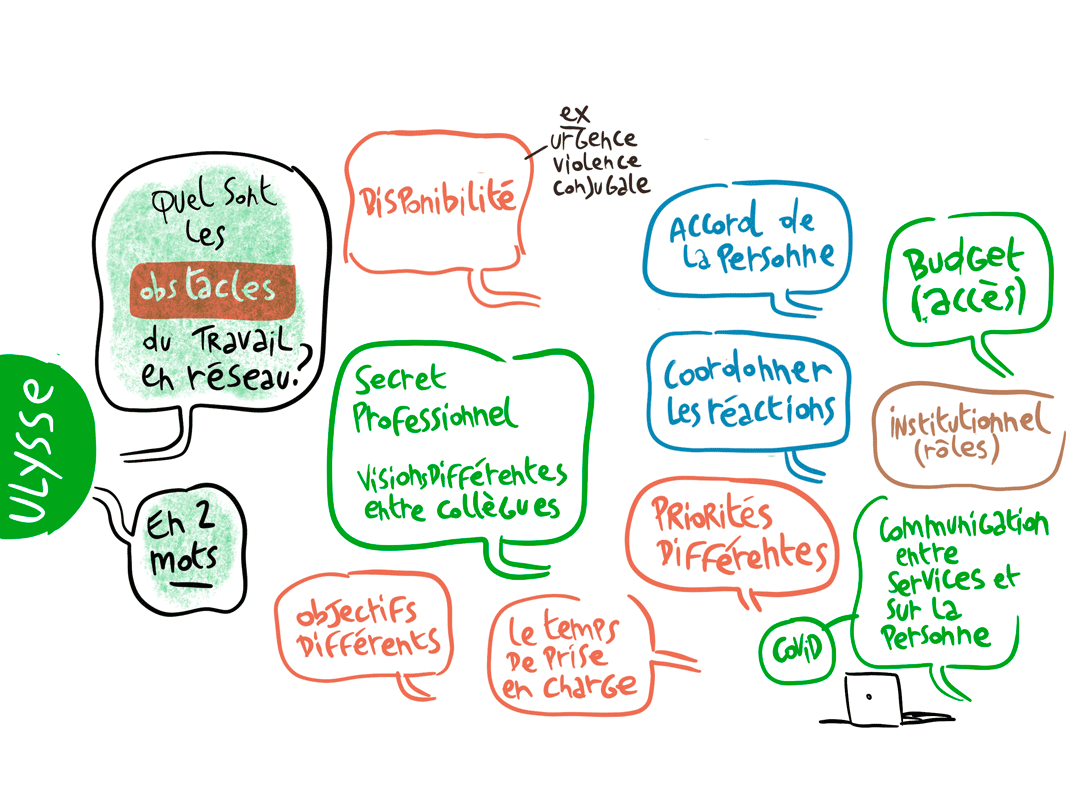 ULYSSE
Quel sont
les
obstacles
du travail
en réseau?
En 2
mots
Disponibilité
ex
urgence
violence
conjugale
Secret
Professionnel
Visions Différentes
entre collègues
objectifs
Différents
Le temps
de prise
en charge
Accord de
la personne
Coordonner
les réactions
Priorités
Différentes
Budget
(accès)
institutionnel
(rôles)
Communication
entre
services et
sur la
personne
COVID